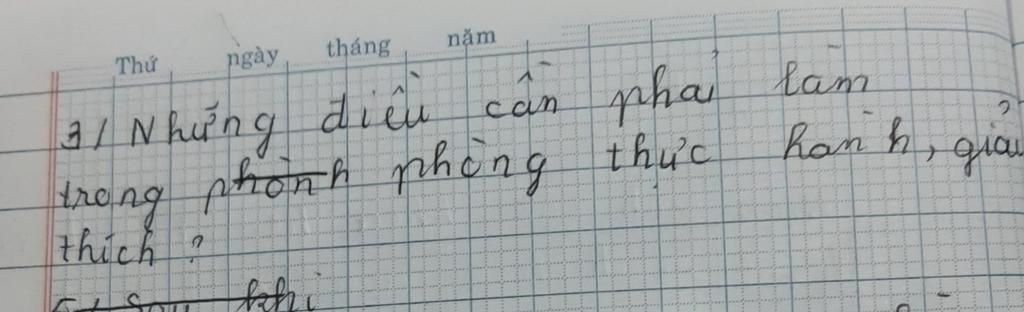 Thứ ngày tháng năm
3/ Những điều cần phải làm
trong phònh phòng thực hành, giải
thích ?
Sau khi